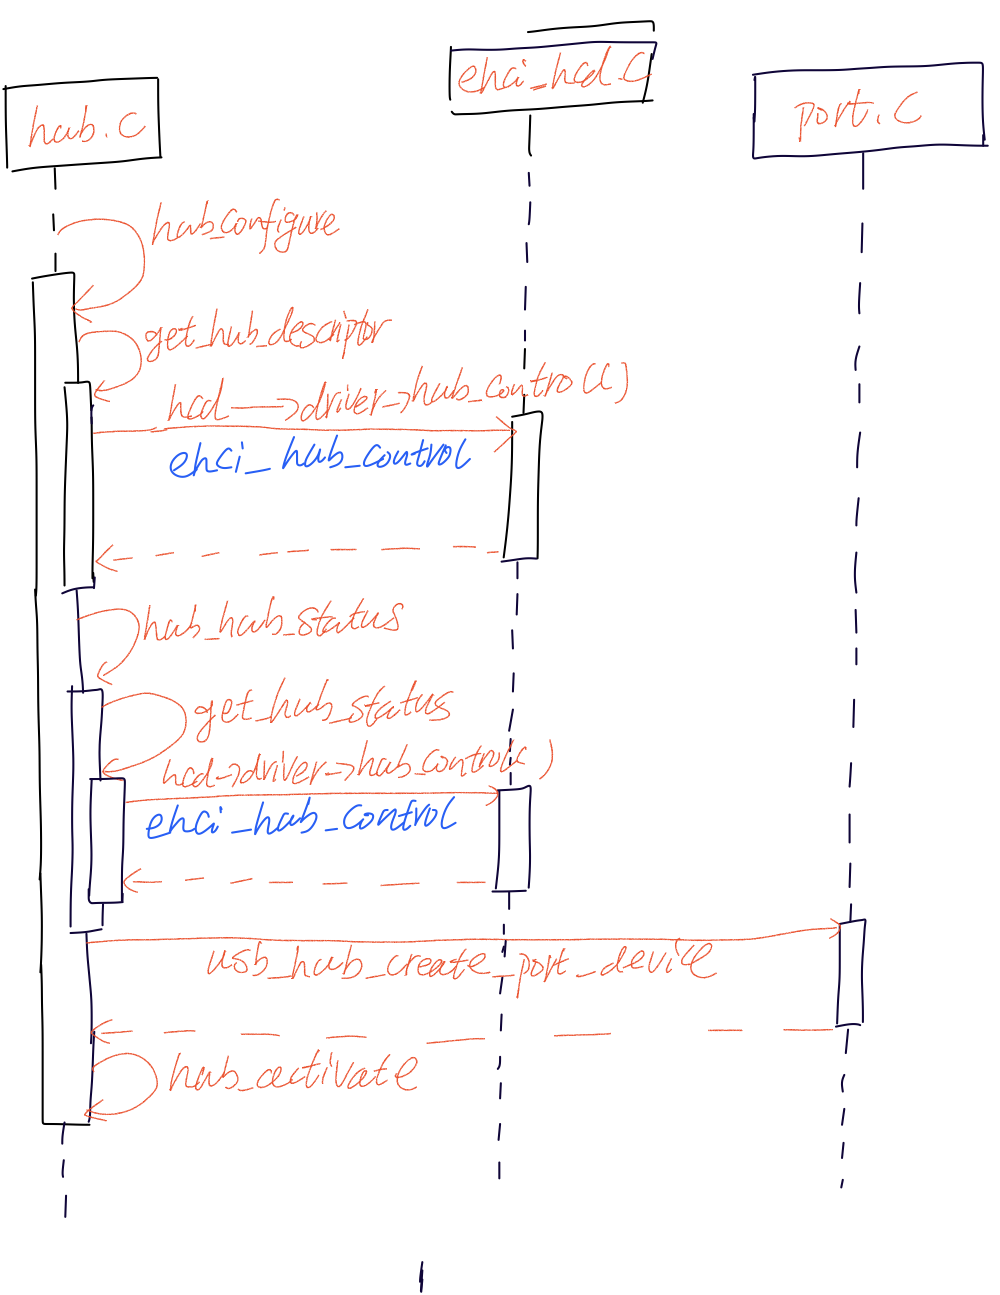 ehci_hcd.c
hub.c
port.c
hub_configure
get_hub_descriptor
hcd→driver→hub_control()
ehci_hub_control
hub_hub_status
get_hub_status
hcd→driver→hub_control()
ehci_hub_control
usb_hub_create_port_device
hub_activate